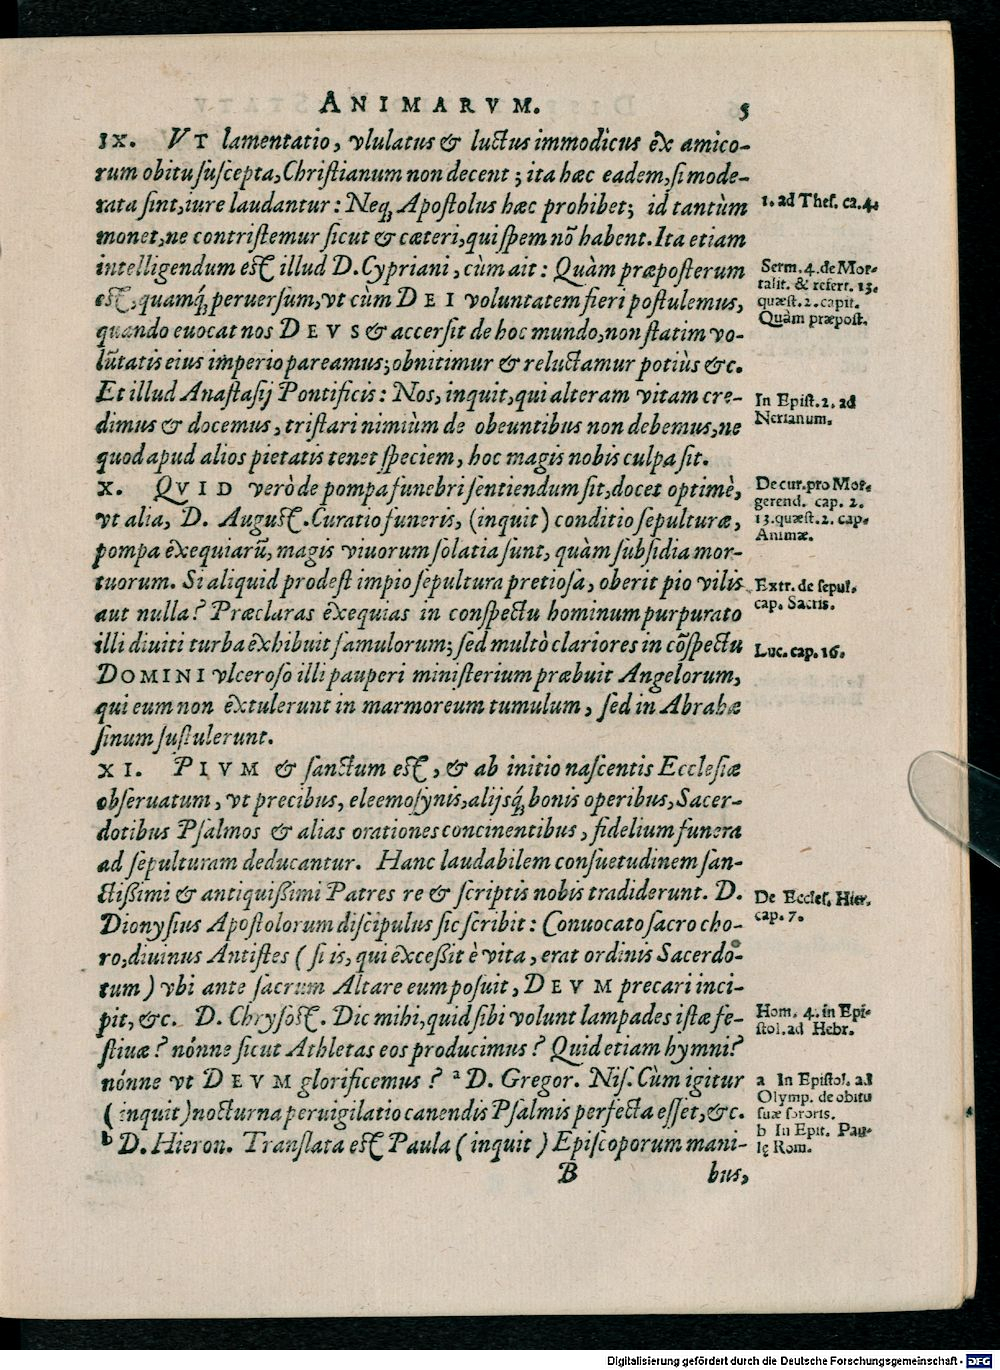 ANIMARVM. 5
IX. VT lamentatio, vlulatus & luctus immodicus ex amico-
rum obitu suscepta, Christianum non decent; ita hæc eadem, si mode-
rata sint, iure laudantur: Neq́; Apostolus hæc prohibet; id tantùm
monet, ne contristemur sicut & cæteri, qui spem nõ habent. Ita etiam
intelligendum est illud D. Cypriani, cùm ait: Quàm præposterum
est, quamq́; peruersum, vt cùm DEI voluntatem fieri postulemus,
quando euocat nos DEVS & accersit de hoc mundo, non statim vo-
lūtatis eius imperio pareamus; obnitimur & reluctamur potiùs &c.
Et illud Anastasij Pontificis: Nos, inquit, qui alteram vitam cre-
dimus & docemus, tristari nimiùm de obeuntibus non debemus, ne
quod apud alios pietatis tenet speciem, hoc magis nobis culpa sit.
X. QVID verò de pompa funebri sentiendum sit, docet optimè,
vt alia, D. August. Curatio funeris, (inquit) conditio sepulturæ,
pompa exequiarū, magis viuorum solatia sunt, quàm subsidia mor-
tuorum. Si aliquid prodest impio sepultura pretiosa, oberit pio vilis
aut nulla? Præclaras exequias in conspectu hominum purpurato
illi diuiti turba exhibuit famulorum; sed multò clariores in cõspectu
DOMINI vlceroso illi pauperi ministerium præbuit Angelorum,
qui eum non extulerunt in marmoreum tumulum, sed in Abrahæ
sinum sustulerunt.
XI. PIVM & sanctum est, & ab initio nascentis Ecclesiæ
obseruatum, vt precibus, eleemosynis, alijsq́; bonis operibus, Sacer-
dotibus Psalmos & alias orationes concinentibus, fidelium funera
ad sepulturam deducantur. Hanc laudabilem consuetudinem san-
ctißimi & antiquißimi Patres re & scriptis nobis tradiderunt. D.
Dionysius Apostolorum discipulus sic scribit: Conuocato sacro cho-
ro, diuinus Antistes (si is, qui exceßit è vita, erat ordinis Sacerdo-
tum) vbi ante sacrum Altare eum posuit, DEVM precari inci-
pit, &c. D. Chrysost. Dic mihi, quid sibi volunt lampades istæ fe-
stiuæ? nónne sicut Athletas eos producimus? Quid etiam hymni?
nónne vt DEVM glorificemus? a D. Gregor. Nis. Cùm igitur
(inquit) nocturna peruigilatio canendis Psalmis perfecta esset, &c.
b D. Hieron. Translata est Paula (inquit) Episcoporum mani-
B bus,
1. ad Thes. ca. 4.
Serm. 4. de Mor-
talit. & refert. 13.
quæst. 2. capit.
Quàm præpost.
In Epist. 2. ad
Nerianum.
De cur. pro Mor-
gerend. cap. 2.
13. quæst. 2. cap.
Animæ.
Extr. de sepul.
cap. Sacris.
Luc. cap. 16.
De Eccles. Hier.
cap. 7.
Hom. 4. in Epi-
stol. ad Hebr.
a In Epistol. ad
Olymp. de obitu
suæ sororis.
b In Epit. Pau-
lę Rom.
Digitalisierung gefördert durch die Deutsche Forschungsgemeinschaft - DFG